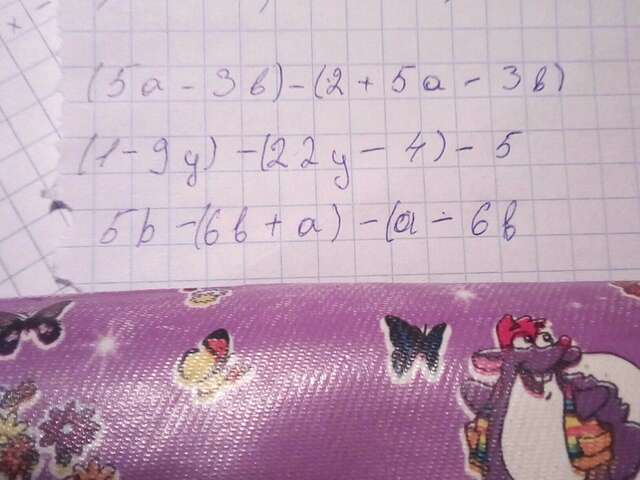 (5а - 3в) - (2 + 5а - 3в)
(1 - 9y) - (22y - 4) - 5
5b - (6в + а) - (а - 6в